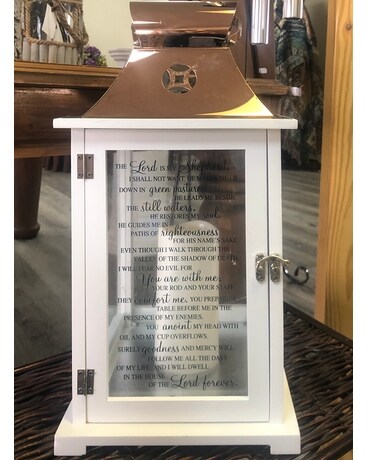 THE Lord IS MY Shepherd,
I SHALL NOT WANT. HE MAKES ME LIE
DOWN IN green pastures
HE LEADS ME BESIDE
THE still waters.
HE RESTORES MY SOUL.
HE GUIDES ME IN
PATHS OF righteousness
FOR HIS NAME'S SAKE
EVEN THOUGH I WALK THROUGH THE
VALLEY OF THE SHADOW OF DEATH
I WILL FEAR NO EVIL FOR
You are with me.
YOUR ROD AND YOUR STAFF
THEY comfort me, YOU PREPARE A
TABLE BEFORE ME IN THE
PRESENCE OF MY ENEMIES.
YOU anoint MY HEAD WITH
OIL AND MY CUP OVERFLOWS.
SURELY goodness AND MERCY WILL
FOLLOW ME ALL THE DAYS
OF MY LIFE, AND I WILL DWELL
IN THE HOUSE
OF THE Lord forever.